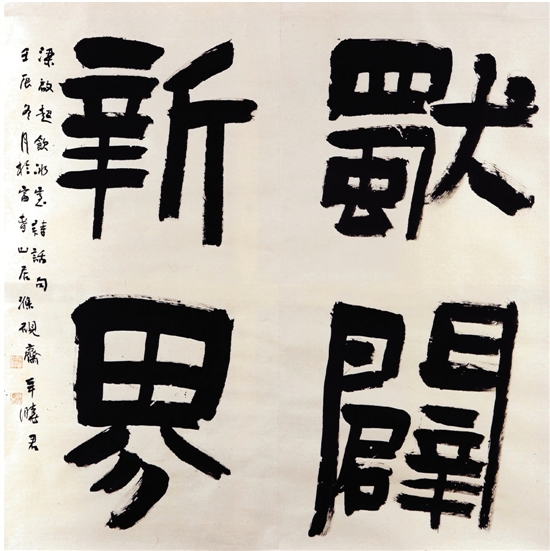 獨闢
新界
梁啟超飲冰室詩話句
壬辰冬月於富春山居滌硯齋